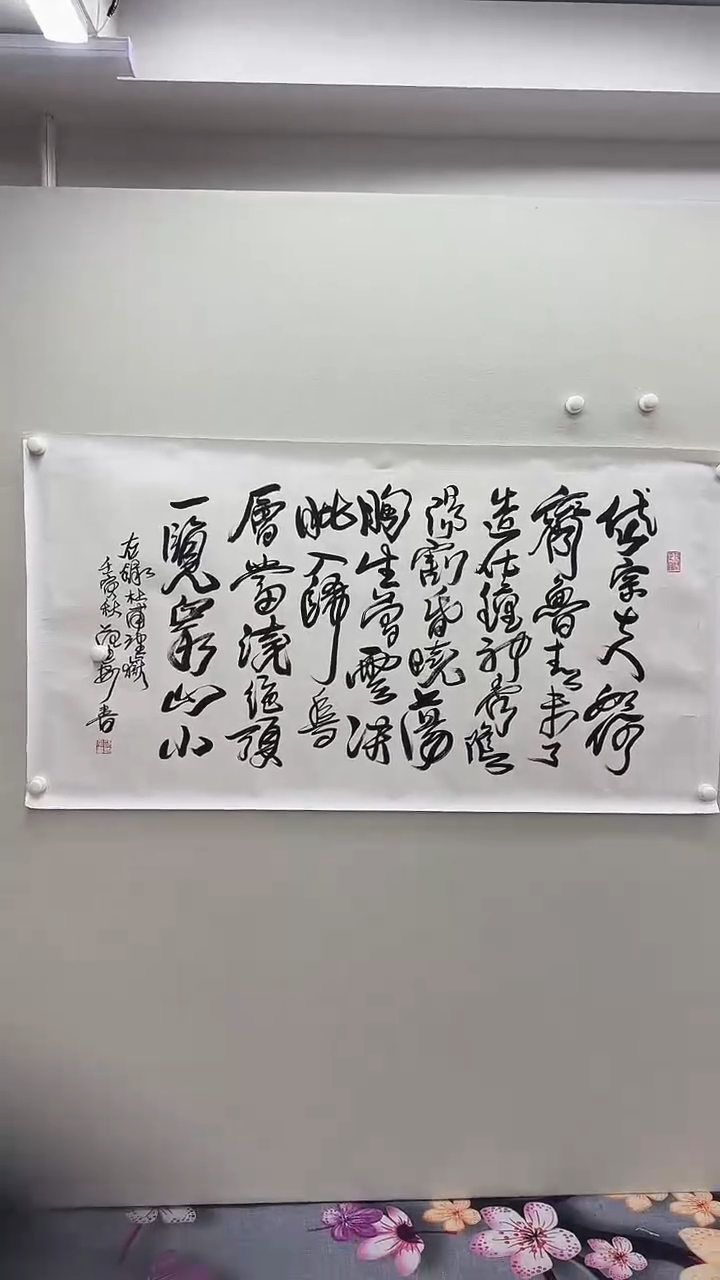 岱宗夫如何
齊魯青未了
造化鍾神秀陰
陽割昏曉蕩
胸生曾雲決
眦入歸鳥
層當淩絕頂
一覽衆山小
右録杜甫望嶽
壬寅秋范書